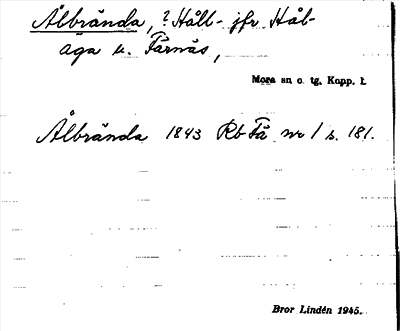 Ålbrända, ? Håll- jfr Hål-
aga u. Färnäs,
Mora sn o. tg, Kopp. l.
Ålbrända 1843 Rb Få nr 1 s. 181.
Bror Lindén 1945.